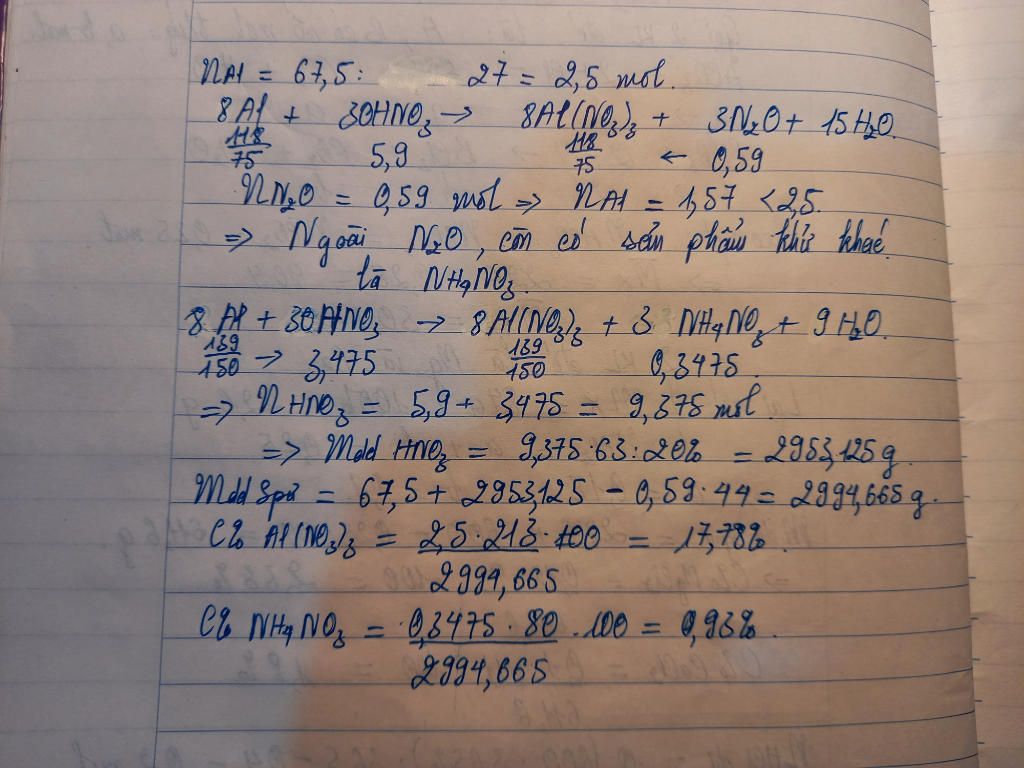 nAl = 67,5 : 27 = 2,5 mol.
8Al + 30HNO₃ → 8Al(NO₃)₃ + 3N₂O + 15H₂O.
118/75 5,9 118/75 ← 0,59
nN₂O = 0,59 mol => nAl = 1,57 < 2,5.
=> Ngoài N₂O, còn có sản phẩm khử khác
là NH₄NO₃.
8Al + 30HNO₃ → 8Al(NO₃)₃ + 3 NH₄NO₃ + 9H₂O.
139/150 → 3,475 139/150 0,3475.
=> nHNO₃ = 5,9 + 3,475 = 9,375 mol.
=> mdd HNO₃ = 9,375·63 : 20% = 2953,125 g.
mdd spứ = 67,5 + 2953,125 - 0,59·44 = 2994,665 g.
C% Al(NO₃)₃ = 2,5·213·100 = 17,78%.
2994,665
C% NH₄NO₃ = 0,3475·80 .100 = 0,93%.
2994,665